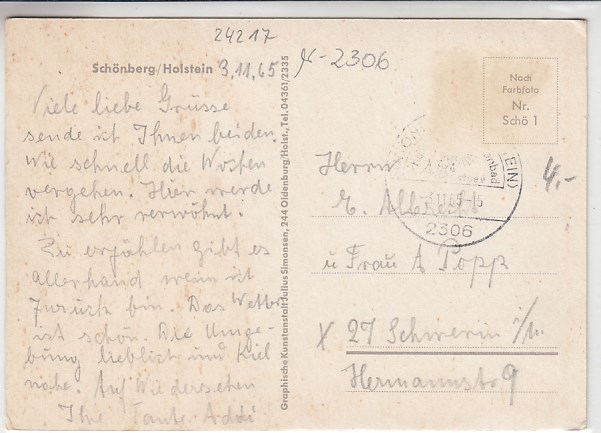 24217
Schönberg/Holstein 3.11.65
2306
Viele liebe Grüsse
sende ich Ihnen beiden.
Wie schnell die Wochen
vergehen. Hier werde
ich sehr verwöhnt.
Zu erzählen gibt es
allerhand wenn ich
zurück bin. Das Wetter
ist schön. Die Umge-
bung lieblich und Kiel
nahe. Auf Wiedersehen
Ihre Tante Addi
Graphische Kunstanstalt Julius Simonsen, 244 Oldenburg/Holst., Tel. 04361/2335
Nach
Farbfoto
Nr.
Schö 1
2306
4,-
Herrn
E. Albrecht
u Frau A Popp
x 27 Schwerin i/M.
Hermannstr 9